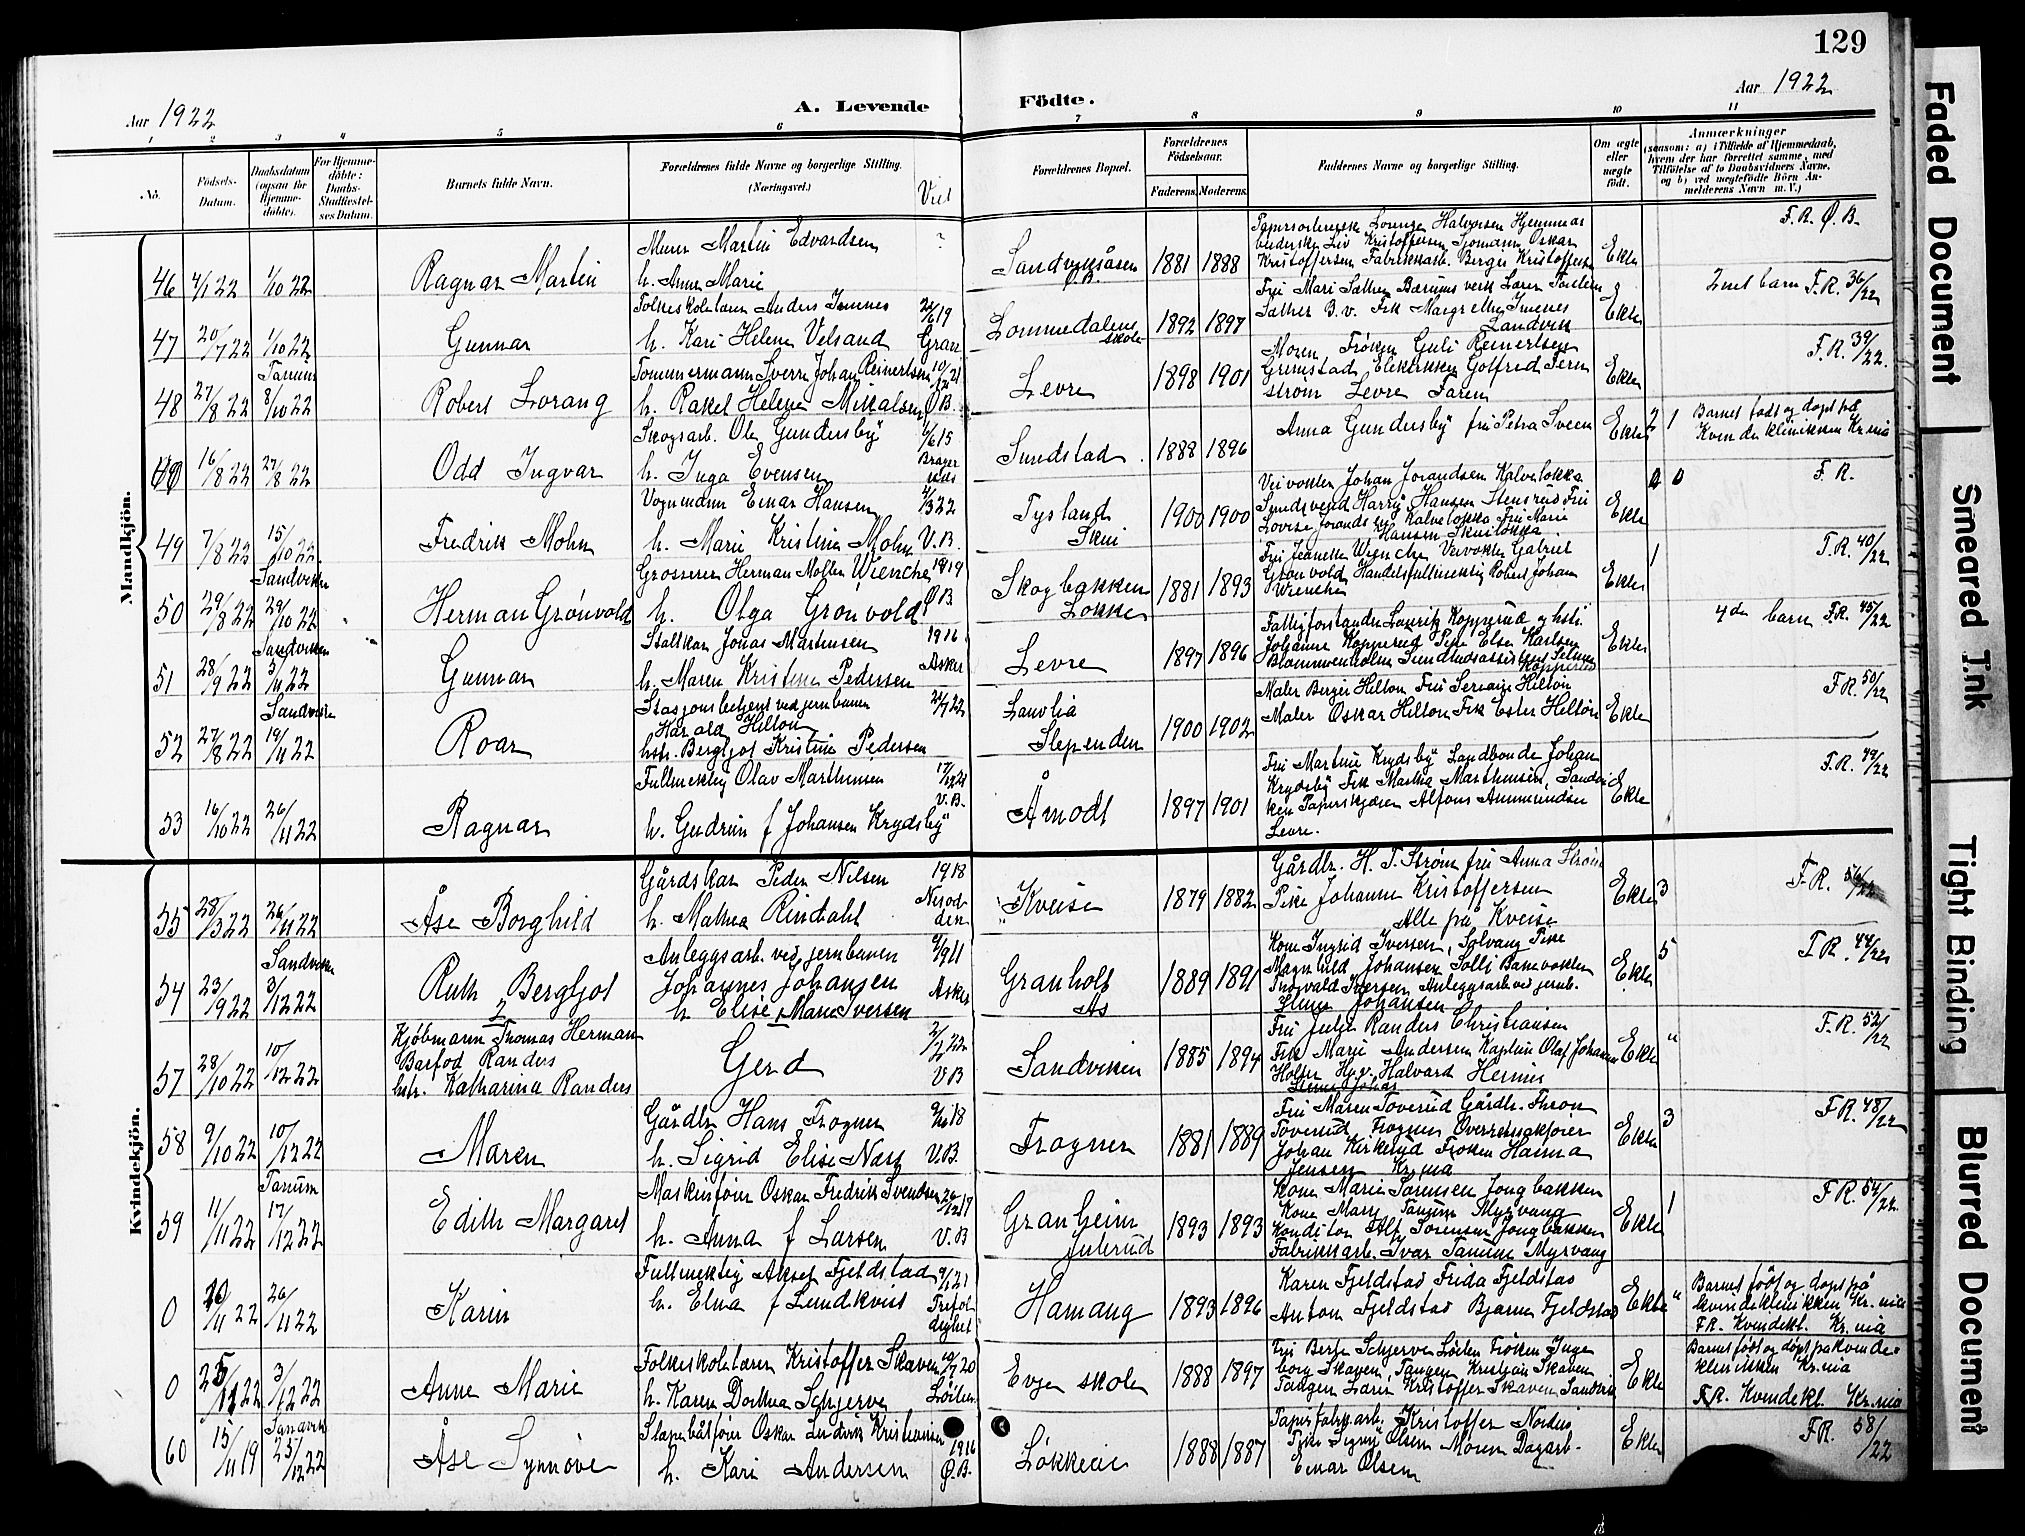 129
Aar 1922
A. Levende Födte.
Aar 1922
1 2 3 4 5 6 7 8 9 10 11
No.
Födsels-Datum.
Daabsdatum (ogsaa for Hjemme-döbte).
For Hjemme-döbte: Daabs-Stadfæstel-ses Datum.
Barnets fulde Navn.
Forældrenes fulde Navne og borgerlige Stilling.
(Næringsvei.)
Viet
Forældrenes Bopæl.
Forældrenes Födselsaar.
Faderens. Moderens.
Faddernes Navne og borgerlige Stilling.
Om ægte eller uægte födt.
Anmærkninger
(saasom: a) i Tilfælde af Hjemmedaab, hvem der har forrettet samme, med Tilföielse af to Daabsvidners Navne, og b) ved uægtefödte Börn An-melderens Navn m. V.)
Mandkjön.
46 4/1 22 1/10 22 Ragnar Martin
Murer Martin Edvardsen
h. Anna Marie
?
Sandviksåsen Ø.B.
1881 1888
Kristoffersen Fabrikkarb. Berger Kristoffersen
Ekte
F.R. Ø.B.
47 20/7 22 1/10 22 Gunnar
Folkeskolelærer Anders Imenes
h. Kari Helene Velsand
Gran
Lommedalens skole
1892 1897
Fru Mari Sather Bærums verk Lærer Torstein
Sather B.v. Frk Margrethe Imenes
Landvik
Ekte
2net barn F.R. 36/22
Tanum
48 27/8 22 8/10 22 Robert Lorang
Tømmermann Sverre Johan Reinertsen
h. Rakel Helene Mikalsen
Ø.B.
Levre
1898 1901
Moren Frøken Guli Reinertsen
Grimstad Elektriker Golfred Fern
strøm Levre Faren
Ekte
F.R. 39/22.
16/8 22 27/8 22 Odd Ingvar
Skogsarb. Ole Gundersby
h. Inga Evensen
6/6 15
Sundstad
1888 1896
Anna Gundersby fru Petra Sveen
Ekte 2 1
Barnet født og døpt på
Kvindeklinikken Kr.nia
49 7/8 22 15/10 22 Fredrik Mohn
Vognmann Einar Hansen
h. Marie Kristine Mohn
4/3 22
V.B.
Tysland
Skui
1900 1900
Veivokter Johan Jorandsen Kalveløkka
Smedsvend Harry Hansen Stensrud Fru
Lovise Jorandsen Kalveløkka Fru Marie
Hansen Skuiløkka
Ekte 0
F.R.
Sandviken
50 29/8 22 29/10 22 Herman Grønvold
Grosserer Herman Møller Wiencke
h. Olga Grønvold
1919
Ø.B.
Skogbakken
Løkke
1881 1893
Fru Jeanette Wiencke Veivokter Gabriel
Grønvold Handelsfullmektig Robert Johan
Wiencke
Ekte 1
F.R. 40/22
Sandviken
51 28/9 22 5/11 22 Gunnar
Stallkar Jonas Martinsen
h. Maren Kristine Pedersen
1916
Asker
Levre
1897 1896
Fattigforstander Lauritz Kopperud og hst.
Johanne Kopperud Pike Else Karlsen
Blommenholm Sundhedsassistent Selmer
Kopperud
Ekte
4de barn F.R. 45/22
Sandviken
52 27/8 22 19/11 22 Roar
Stasjonsbetjent ved jernbanen
Harald Hilton
hstr. Bergljot Kristine Pedersen
22/7 22
Lauvlia
Slependen
1900 1902
Maler Berger Hilton Fru Seraine Hilton
Maler Oskar Hilton Frk Ester Hilton
Ekte
F.R. 50/22
53 16/10 22 26/11 22 Ragnar
Fullmektig Olav Marthinsen
h. Gudrun f Johansen Krydsby
17/12 21
V.B.
Åmodt
1897 1901
Fru Martine Krydsby Landbonde Johan
Krydsby Frk Martha Marthinsen, Sandvi
ken Papirskjærer Alfons Ammundsen
Levre.
Ekte
F.R. 49/22
Kvindekjön.
55 28/3 22 26/11 22 Åse Borghild
Gårdskar Peder Nilsen
h. Mathea Rindahl
1918
Nesod-
den
Kveise
1879 1882
Gårdbr. H. T. Strøm fru Anna Strøm
Pike Johanne Kristoffersen
Alle på Kveise
Ekte 3
F.R.
Sandviken
54 23/9 22 3/12 22 Ruth Bergljot
Anleggsarb. ved jernbanen
Johannes Johansen
h Elise Marie Iversen
9/9 11
Asker
Granholt
Ås
1889 1891
Kone Ingrid Iversen, Solvang Pike
Magnhild Johansen Solli Banevokter
Thorvald Iversen Anleggsarb ved jernb.
Johansen
Ekte 5
F.R. 44/22
57 28/10 22 10/12 22
Kjøbmann Thomas Herman
Barfod Randers
hstr. Katharina Randers
Gerd
2/2 22
V B
Sandviken
1885 1894
Fru Julie Randers Christiansen
Frk Marie Andersen Kaptein Olaf Johannes
Holter Halvard Hermin
Ekte "
F.R. 52/22
58 9/10 22 10/12 22 Maren
Gårdbr Hans Frogner
h. Sigrid Elise Næss
V.B.
Frogner
1881 1889
Fru Maren Toverud Gårdbr. Thron
Toverud, Frogner Overretssakfører
Johan Kirkerud Frøken Hanna
Jensen Kr.nia
Ekte 3
F.R. 48/22
Tanum
59 11/11 22 17/12 22 Edith Margaret
Maskinfører Oskar Fredrik Svendsen
h. Anna f Larsen
26/12 17
V.B
Granheim
Juterud
1893 1893
Kone Marie Sørensen Jongbakken
Kone Mary Tanum Myrvang
Konditor Alf Sørensen Jongbakken
Fabrikkarb. Ivar Tanum Myrvang
Ekte 1
F R. 54/22.
0 20/11 22 26/11 22 Karin
Fullmektig Aksel Fjeldstad
h. Elna f Lundkvist
9/1 21
Trefol
dighet
Hamang
1893 1896
Karen Fjeldstad Frida Fjeldstad
Anton Fjeldstad Bjarne Fjeldstad
Ekte "
Barnet født og døpt på
kvindeklinikken Kr.nia
F.R. Kvindekl. Kr.nia
0 25/11 22 3/12 22 Anne Marie
Folkeskolelærer Kristoffer Skaven
h. Karen Dorthea Schjerve
10/7 20
Løiten
Evje skole
1888 1897
Fru Berte Schjerve Løiten Frøken Inge
borg Skaven, Tangen, Kristian Skaven
Tangen Lærer Kristoffer Skaven Sandvik
Ekte
Barnet født og døpt på kvinde-
klinikken Kr.nia
F.R. Kvindekl. Kr.nia
Sandvik
60 15/11 19 25/12 22 Åse Synnøve
Slæpebåtfører Oskar Ludvik Kristiansen
h. Kari Andersen
1916
Ø.B.
Løkkeeie
1888 1887
Papirfabrarb. Kristoffer Nordli
Pike Signy Olsen Moren Dagarb.
Einar Olsen
Ekte
F R. 58/22
Faded Document
Smeared Ink
Tight Binding
Blurred Document